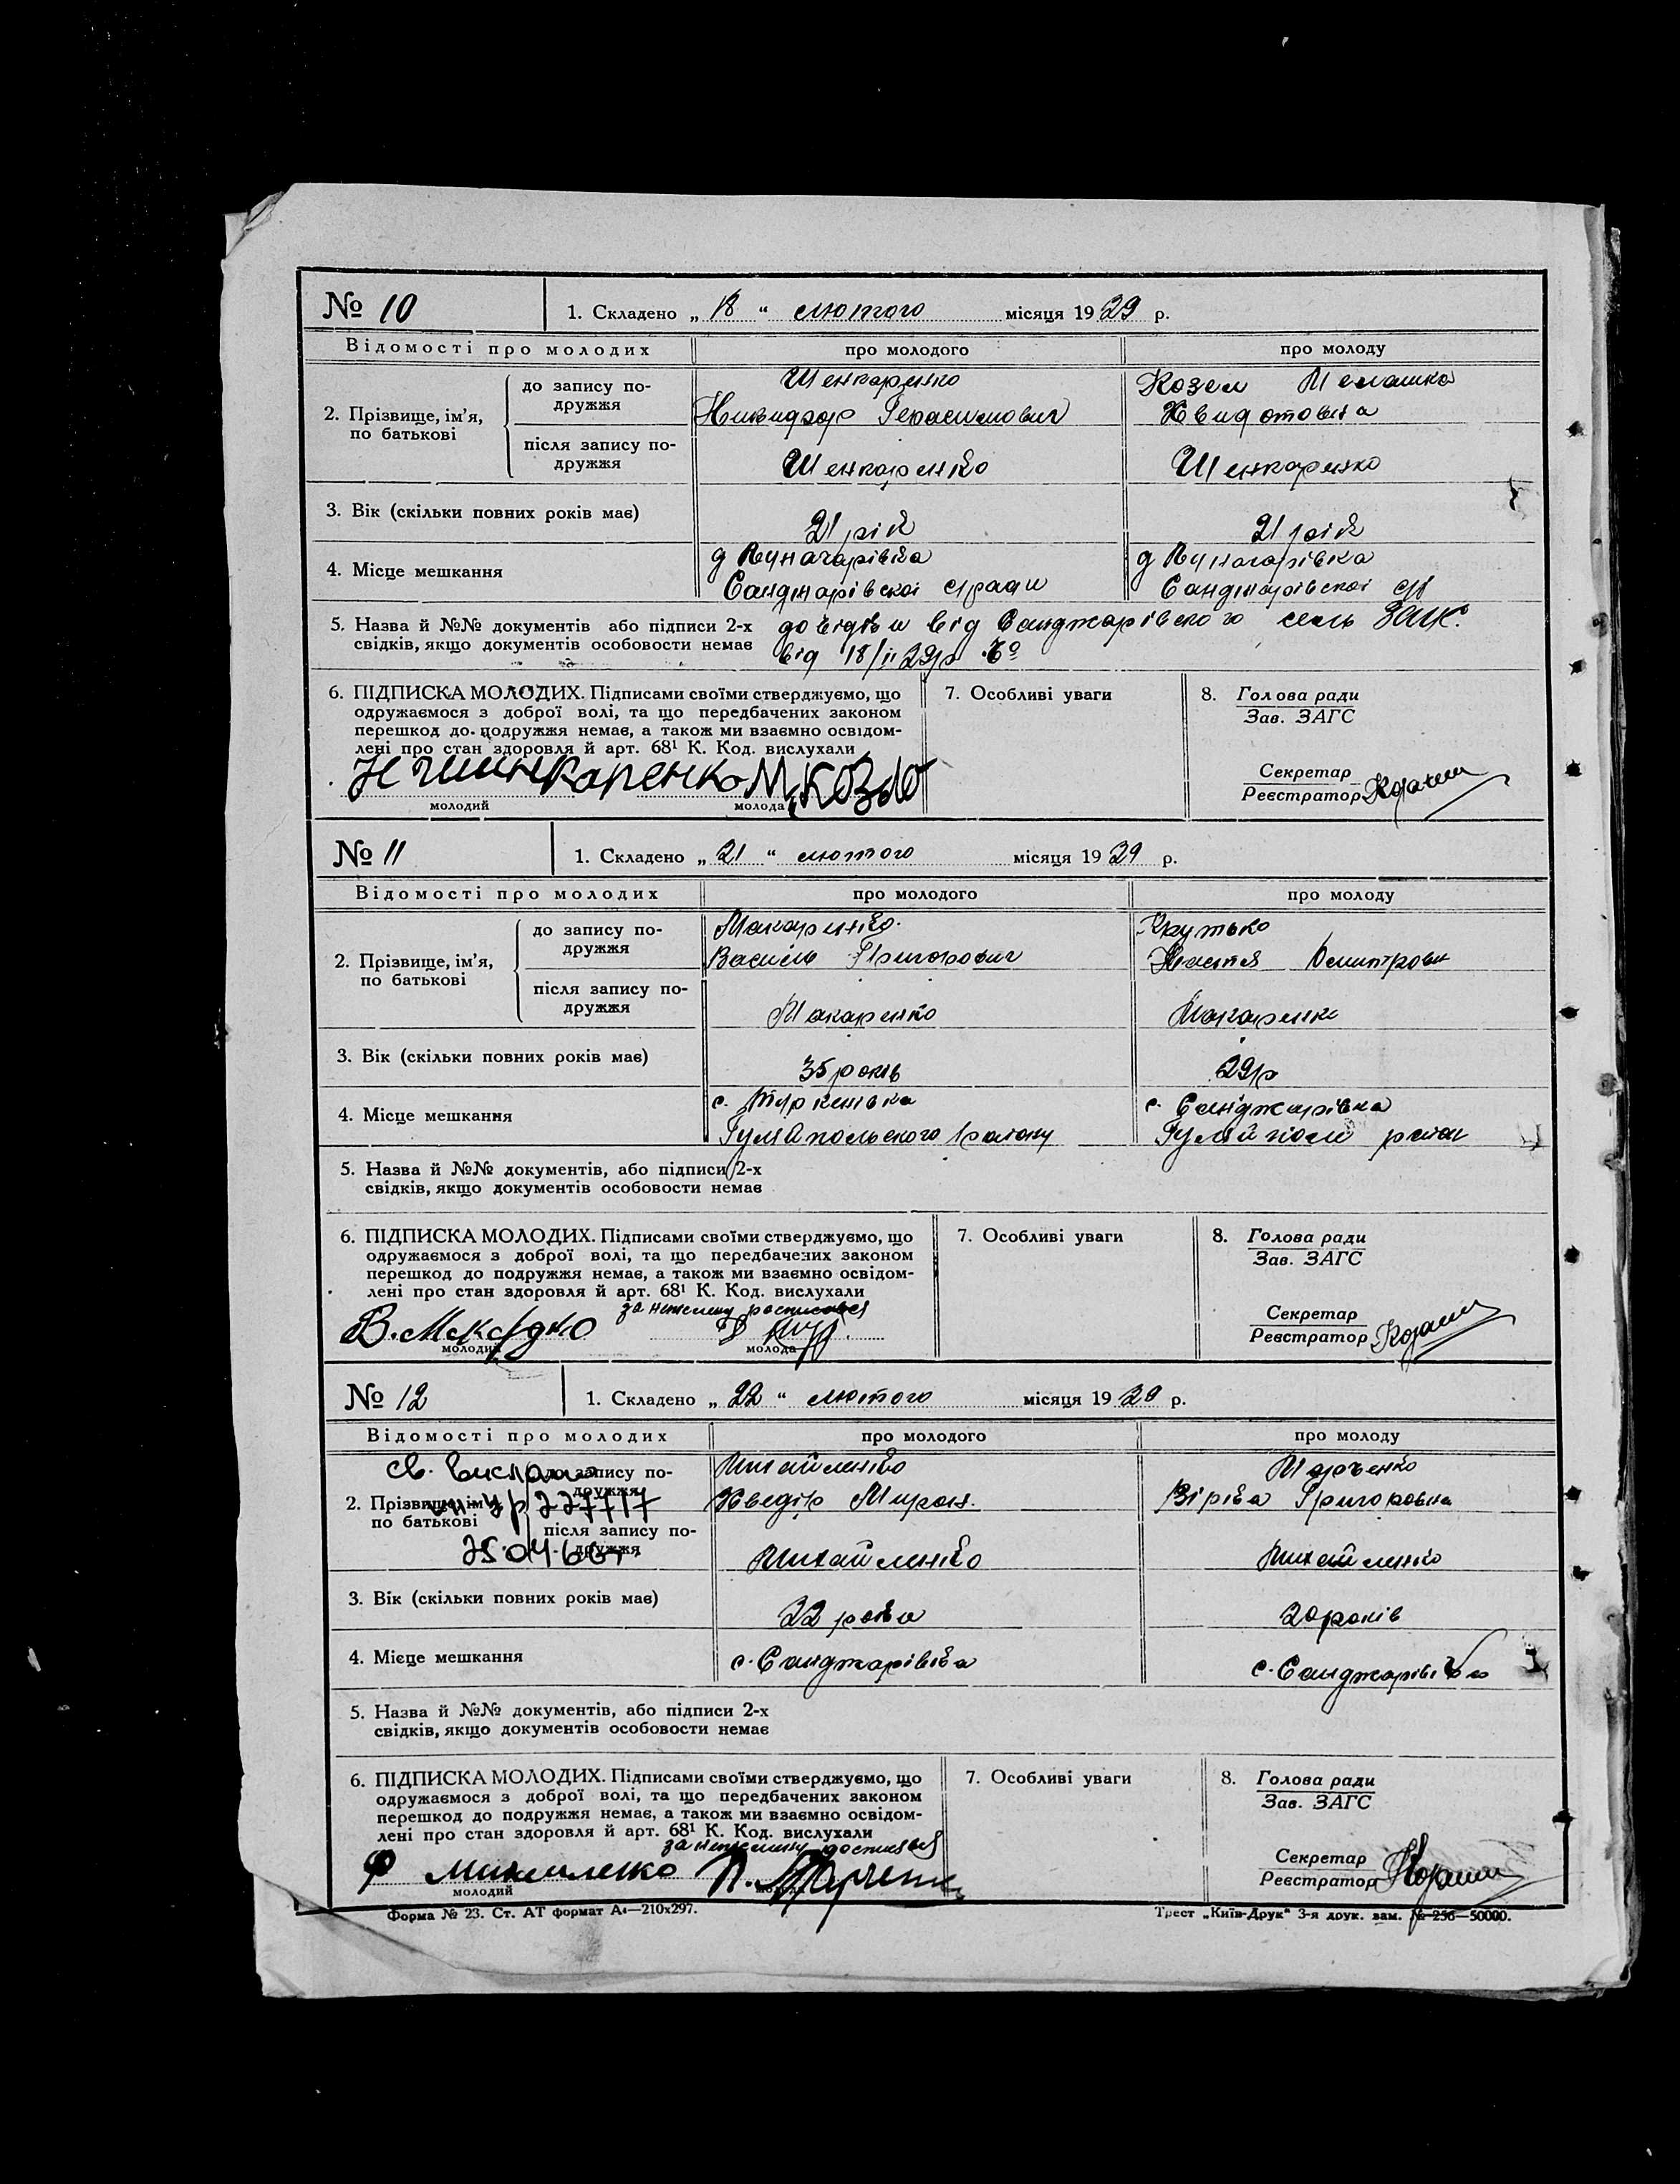 № 10
1. Складено „ 18 “ лютого місяця 1929 р.
Відомості про молодих
про молодого
про молоду
2. Прізвище, ім’я, по батькові
до запису подружжя
Шенкаренко
Герасимович
Козел Мелашка
Хвидотовна
після запису подружжя
Шенкаренко
Шенкаренко
3. Вік (скільки повних років має)
21 рік
21 рік
4. Місце мешкання
д Луначарівка
Санджарівскоі с/ради
д Луначарівка
Санджарівскоі с/р
5. Назва й №№ документів або підписи 2-х
свідків, якщо документів особовости немає
довідки від Санджарівского сель
від 18/II 29р
6. ПІДПИСКА МОЛОДИХ. Підписами своїми стверджуємо, що
одружаємося з доброї волі, та що передбачених законом
перешкод до подружжя немає, а також ми взаємно освідом-
лені про стан здоров�ля й арт. 68¹ К. Код. вислухали
молодий
молода
7. Особливі уваги
8. Голова ради
Зав. ЗАГС
Секретар
Реєстратор
№ 11
1. Складено „ 21 “ лютого місяця 1929 р.
Відомості про молодих
про молодого
про молоду
2. Прізвище, ім’я, по батькові
до запису подружжя
Макаренко
Василь Григорович
Крутько
Настя Дмитровн
після запису подружжя
Макаренко
Макаренко
3. Вік (скільки повних років має)
35 років
29 р
4. Місце мешкання
с.
Гуляйпольского району
с. Санджарівка
Гуляй поль район
5. Назва й №№ документів, або підписи 2-х
свідків, якщо документів особовости немає
6. ПІДПИСКА МОЛОДИХ. Підписами своїми стверджуємо, що
одружаємося з доброї волі, та що передбачених законом
перешкод до подружжя немає, а також ми взаємно освідом-
лені про стан здоровля й арт. 68¹ К. Код. вислухали
молодий
молода
7. Особливі уваги
8. Голова ради
Зав. ЗАГС
Секретар
Реєстратор
№ 12
1. Складено „ 22 “ лютого місяця 1929 р.
Відомості про молодих
про молодого
про молоду
2. Прізвище, ім’я, по батькові
до запису подружжя
227717
25.04.66г.
Михайленко
Хведір Мирон.
Марченко
Григоровна
після запису подружжя
Михайленко
Михайленко
3. Вік (скільки повних років має)
22 рока
20 років
4. Місце мешкання
с. Санджарівка
с. Санджарівка
5. Назва й №№ документів, або підписи 2-х
свідків, якщо документів особовости немає
6. ПІДПИСКА МОЛОДИХ. Підписами своїми стверджуємо, що
одружаємося з доброї волі, та що передбачених законом
перешкод до подружжя немає, а також ми взаємно освідом-
лені про стан здоровля й арт. 68¹ К. Код. вислухали
Ф Михайленко
молодий
7. Особливі уваги
8. Голова ради
Зав. ЗАГС
Секретар
Реєстратор
Форма № 23. Ст. АТ формат А₄—210x297.
Трест „Київ-Друк“ 3-я друк. зам. № 256—50000.